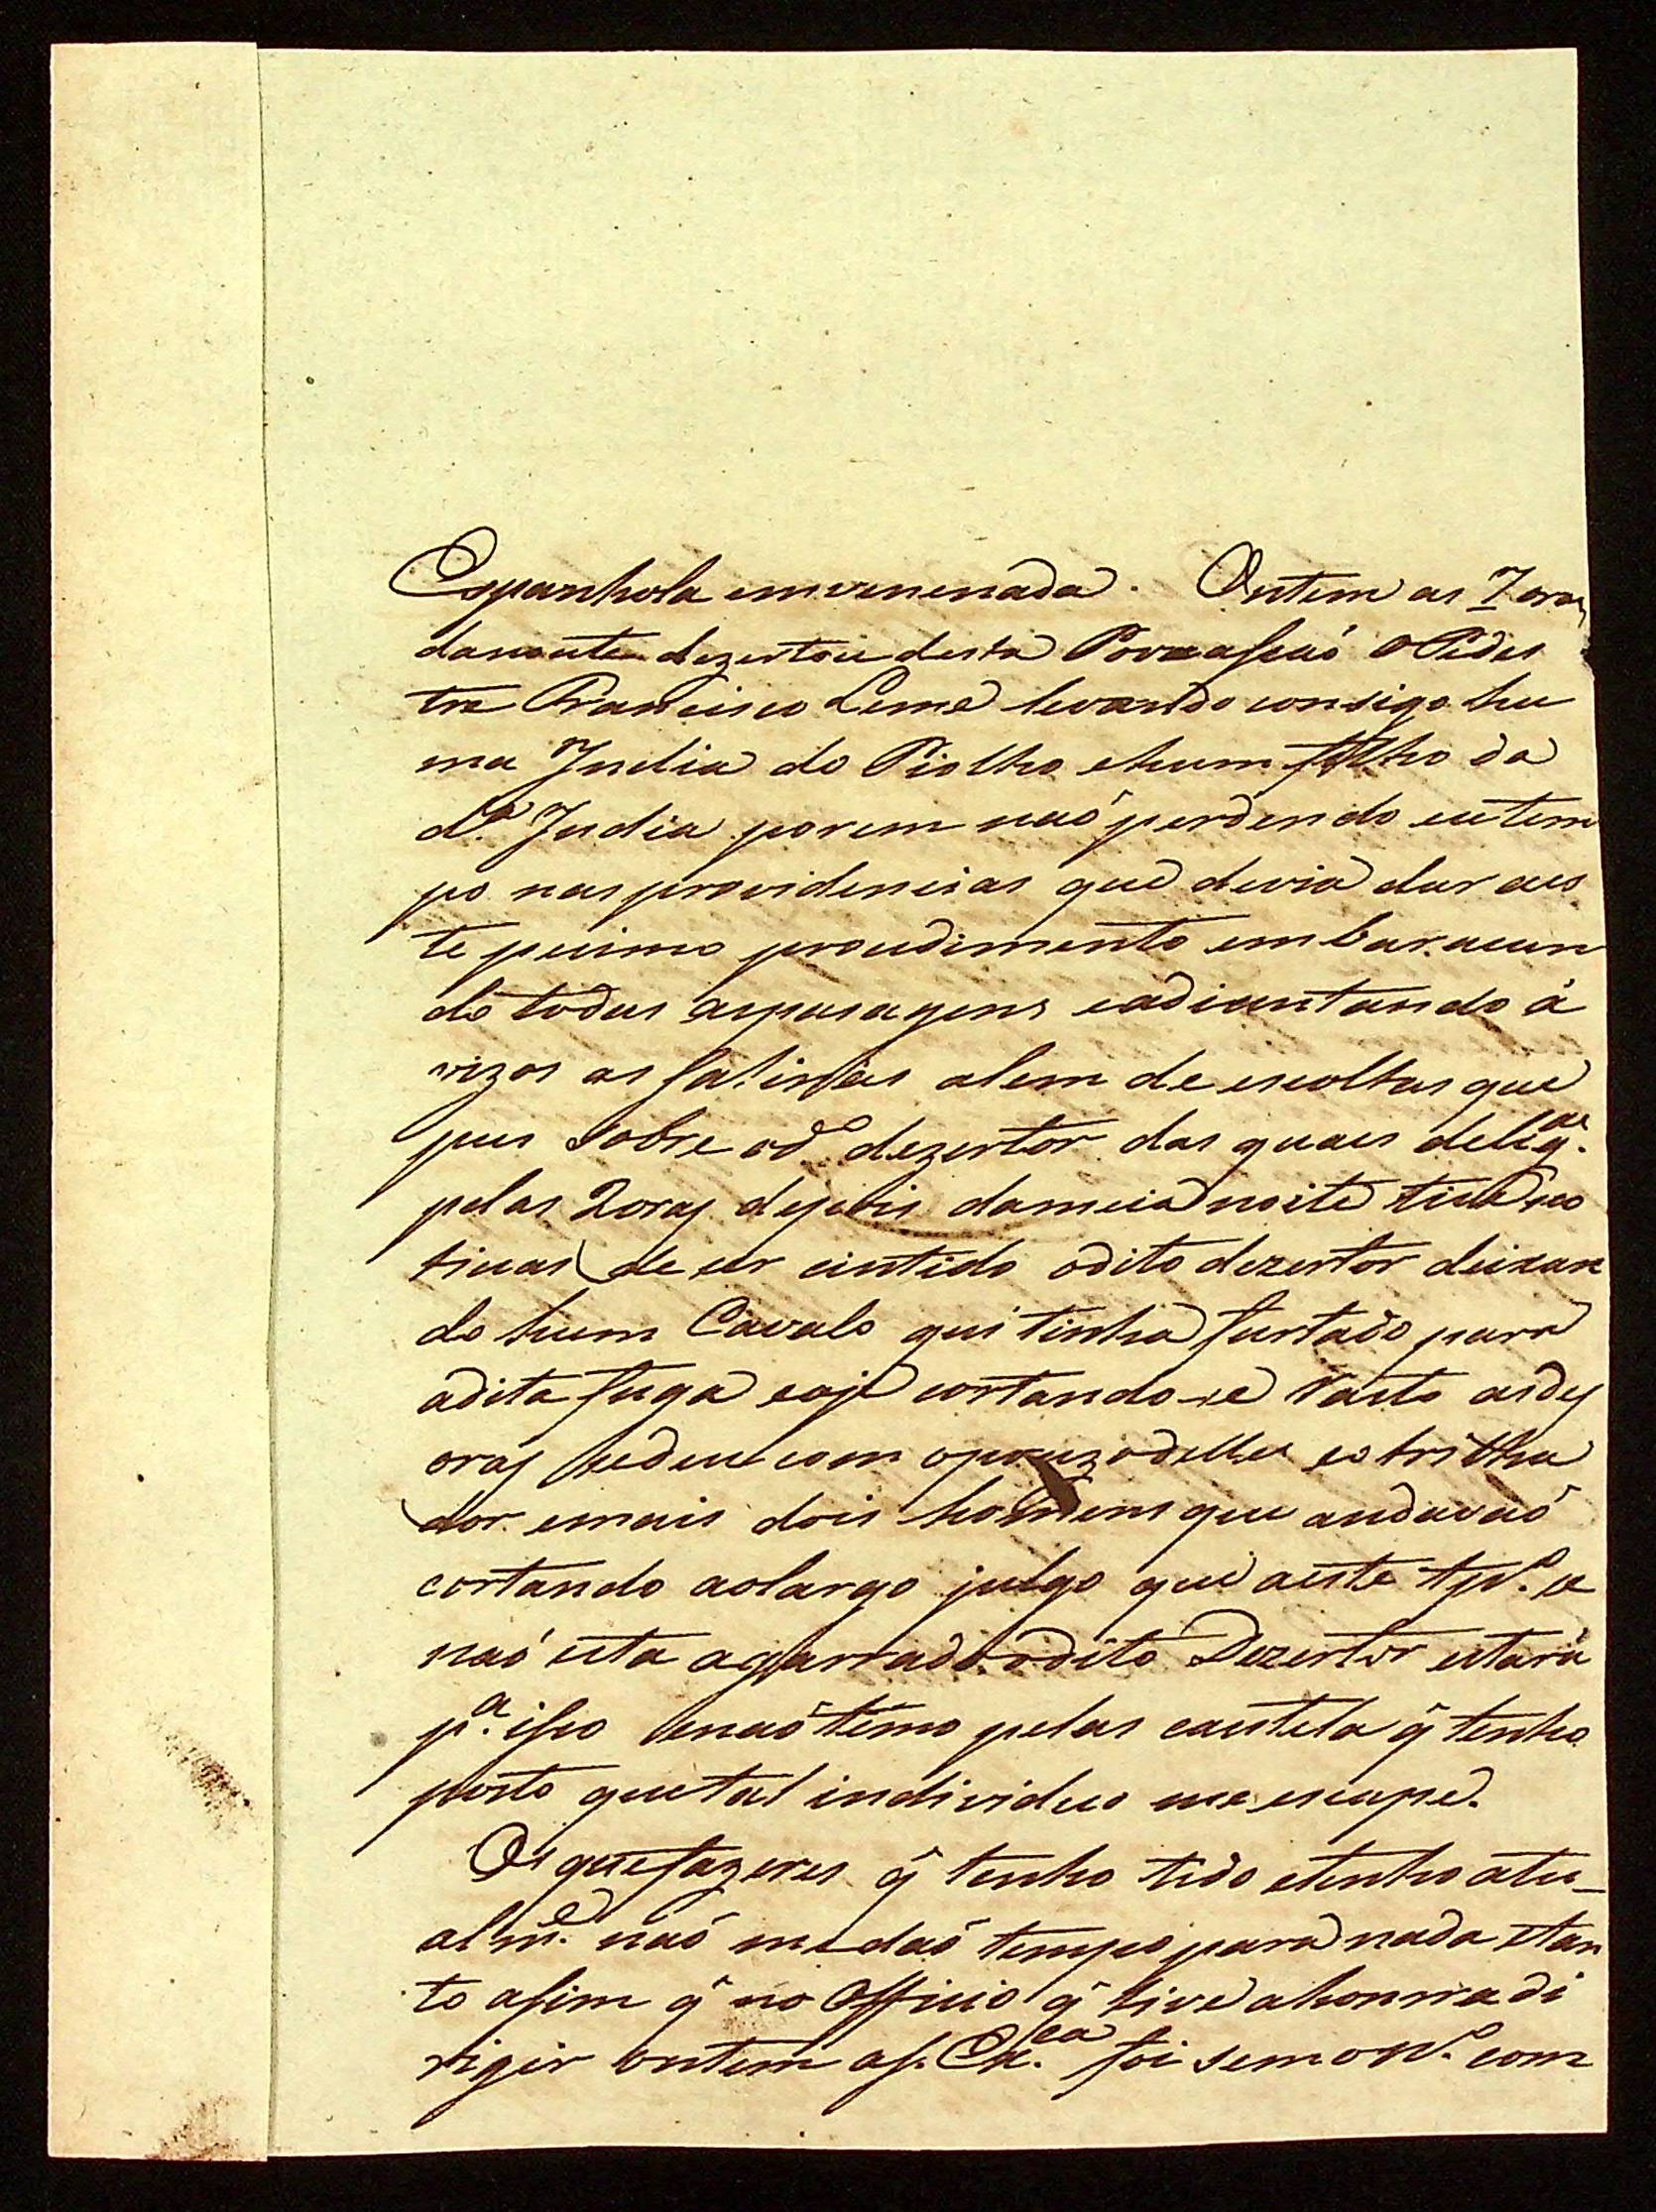 Espanhola envenenada. Ontem as 7 oras
danoute dezertou desta Povoasaó o Pedes
tre Francisco Leme levando consigo hu
ma India do Piolho ehum filho da
d.ª India porem naó perdendo eu tem
po nas providencias que devia dar aes
te pecimo proudimento embaracan
do todas aspasagens eadiantando á
vizos as salinas alem de escoltas que
pus sobre od.º dezertor das quais delig.as
pelas 2 oras depois dameia noite tive no
ticias de ser cintido odito dezertor deixan
do hum Cavalo que tinha furtado para
adita fuga eoje cortando-se rasto asdes
oras sedeu com opouzo delle eo trilha
dor emais dois homens que andavaó
cortando aolargo julgo que aeste tp.º se
naó esta agarrado odito Dezertor estará
p.ª iso enaó temo pelas cautela q̃ tenho
posto quetal individuo me escape.
Os quefazeres q̃ tenho tido etenho atu-
alm.e naó medaó tempo para nada etan
to asim q̃ no Officio q̃ tive ahonrra di
rigir ontem aS. Ex.cia foi sem o N.º com